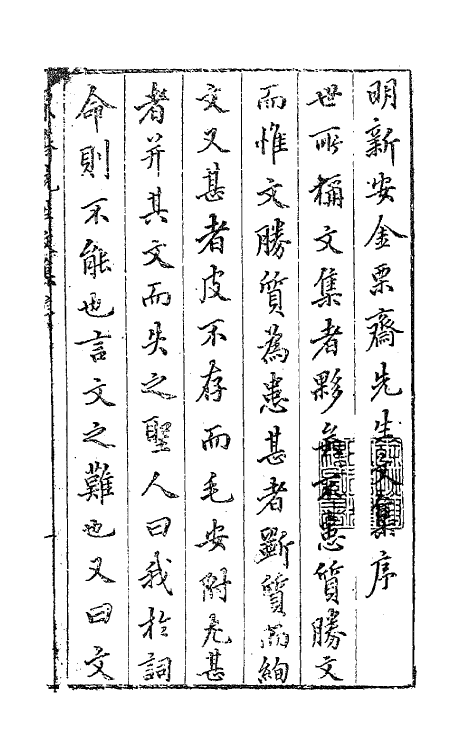 明新安金栗齋先生文集序
世所稱文集者夥矣不患質勝文
而惟文勝質為患甚者斵質而絢
文又甚者皮不存而毛安附尤甚
者并其文而失之聖人曰我於詞
命則不能也言文之難也又曰文